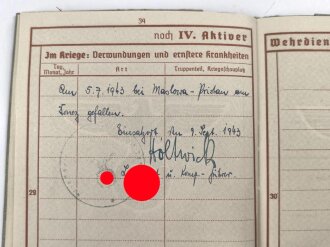 34
noch IV. Aktiver
Wehrdien
Im Kriege: Verwundungen und ernstere Krankheiten
Tag, Monat, Jahr
Art
Truppenteil, Kriegsschauplatz
Am 5.7.1943 bei am
gefallen.
Einsatzort den 9. Sept. 1943
Holtwick
u. Komp.-Führer.
29
30